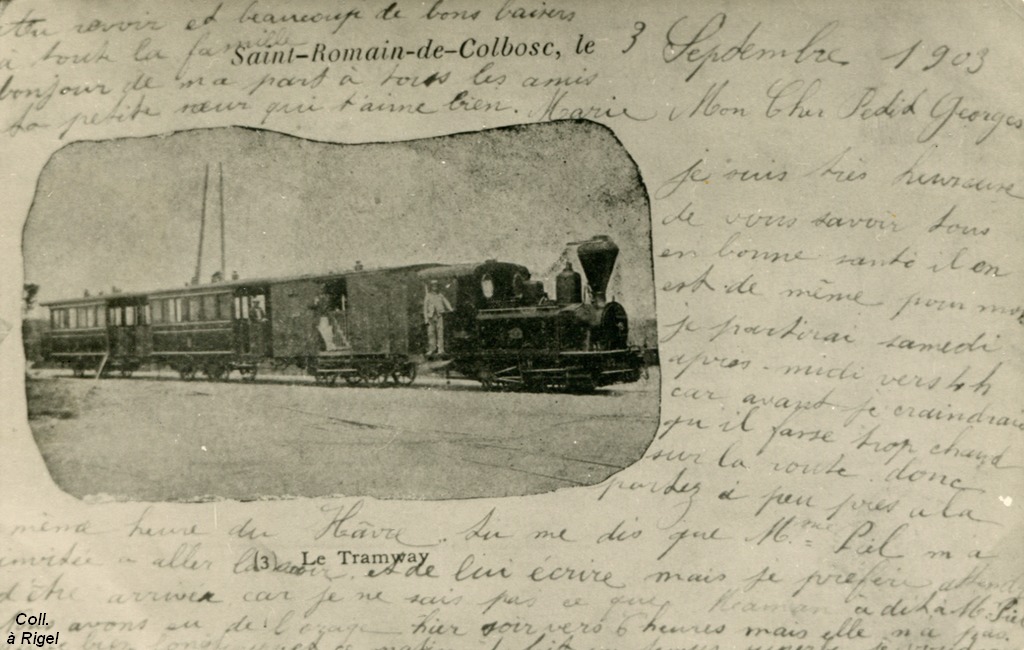 Saint-Romain-de-Colbosc, le 3 Septembre 1903
Mon Cher Petit Georges
je suis très heureuse
de vous savoir tous
en bonne santé il en
est de même pour moi
je partirai samedi
après-midi vers 4 h
car avant je craindrais
qu'il fasse trop chaud
sur la route donc
partez à peu près à la
même heure du Hâvre. tu me dis que Mme Piel m'a
invitée à aller la voir et de lui écrire mais je préfère attendre
d'être arrivée car je ne sais pas ce que Maman a dit à Me Piel
avons eu de l'orage hier soir vers 6 heures mais elle n'a pas
bien
au revoir et beaucoup de bons baisers
à toute la famille
bonjour de ma part à tous les amis
ta petite sœur qui t'aime bien. Marie
(3) Le Tramway
Coll.
à Rigel